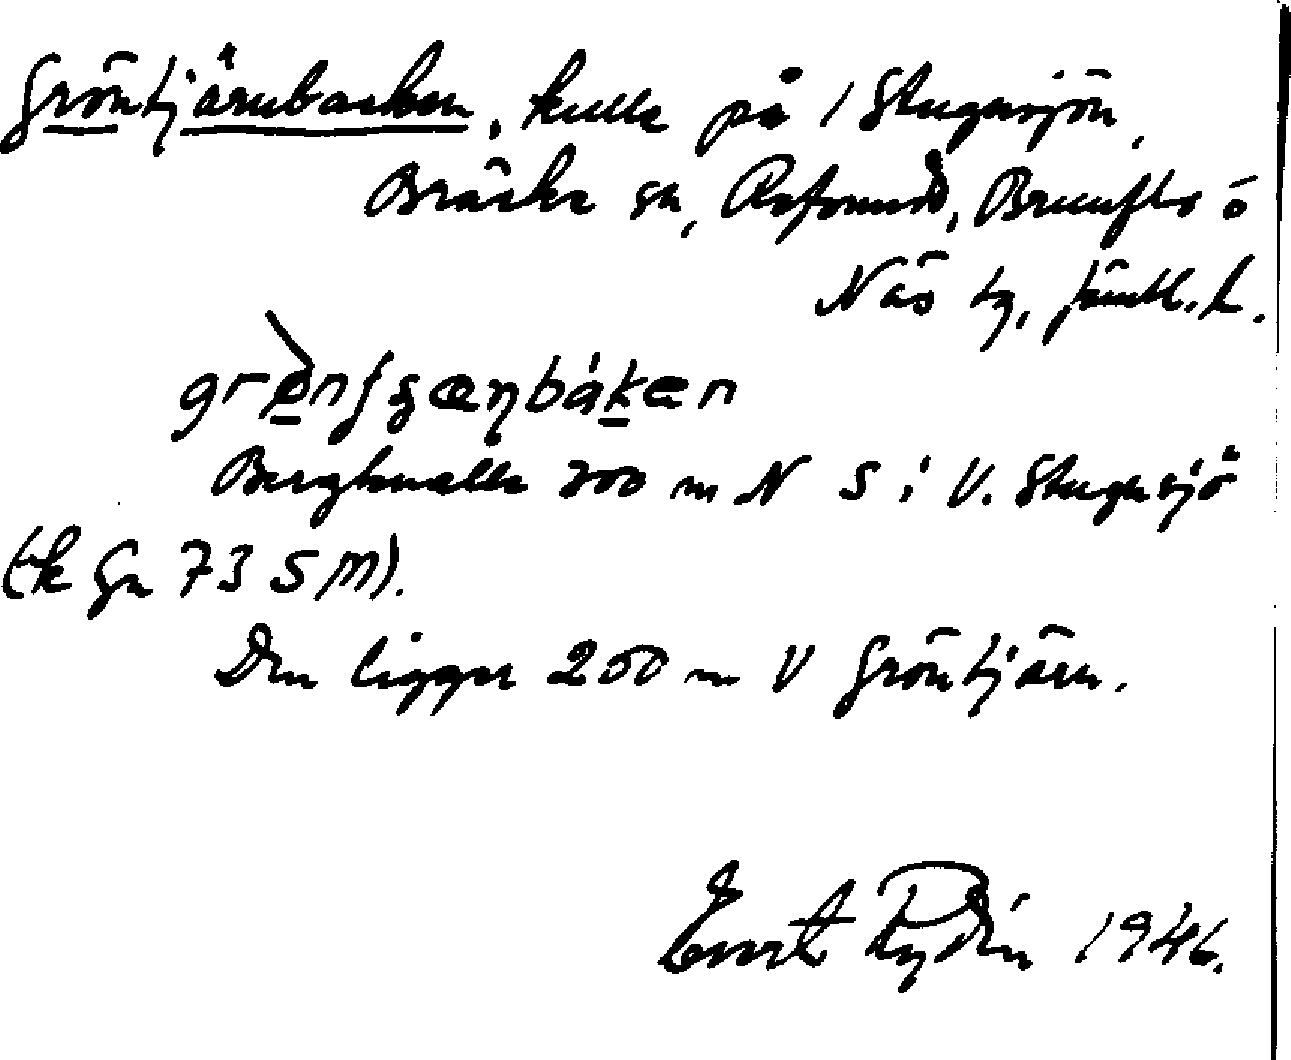 Gröntjärnbacken, kulle på 1 Stugusjön,
Bräcke sn, Refsund, Brunflo o
Näs tg, Jämtl. l.
Bergknalle 200 m N S i V. Stugusjö
(tk Gn 73 S M).
Den ligger 200 m V Gröntjärn.
Evert Rydin 1946.